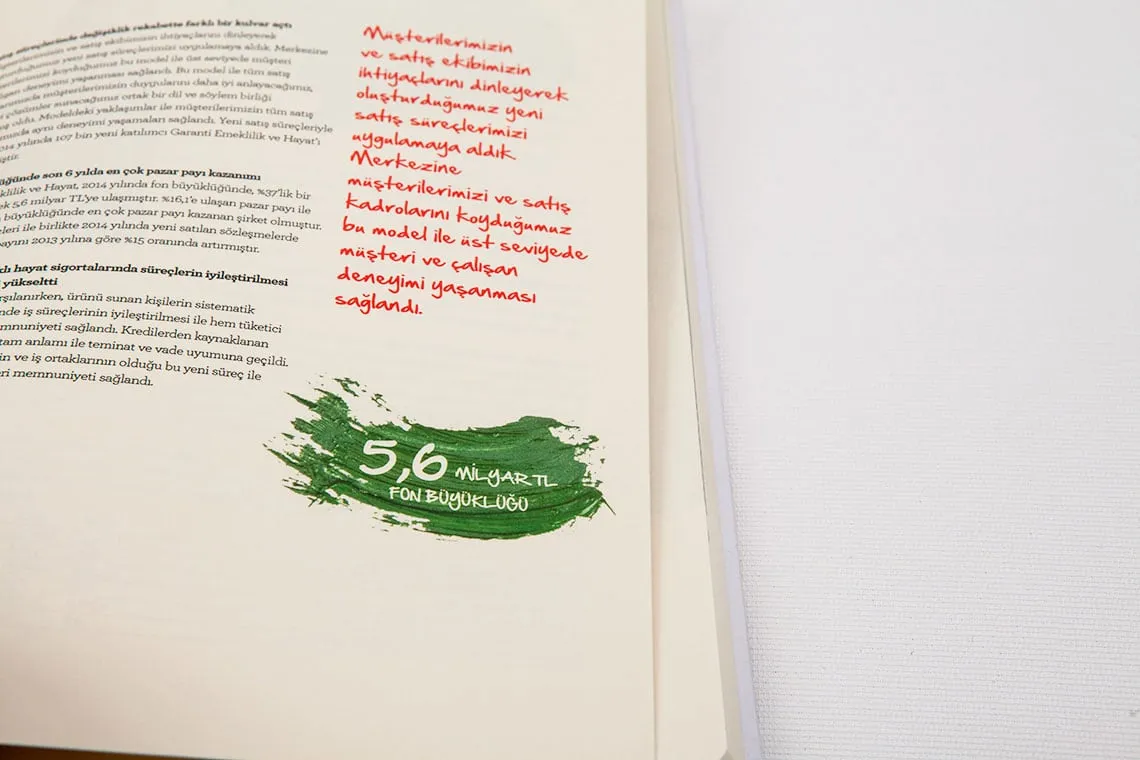 süreçlerinde değişiklik rekabette farklı bir kulvar açtı
ve satış ekibimizin ihtiyaçlarını dinleyerek
yeni satış süreçlerimizi uygulamaya aldık. Merkezine
koyduğumuz bu model ile üst seviyede müşteri
deneyimi yaşanması sağlandı. Bu model ile tüm satış
müşterilerimizin duygularını daha iyi anlayacağımız,
çözümler sunacağımız ortak bir dil ve söylem birliği
oldu. Modeldeki yaklaşımlar ile müşterilerimizin tüm satış
aynı deneyimi yaşamaları sağlandı. Yeni satış süreçleriyle
yılında 107 bin yeni katılımcı Garanti Emeklilik ve Hayat'ı
son 6 yılda en çok pazar payı kazanımı
ve Hayat, 2014 yılında fon büyüklüğünde, %37'lik bir
5,6 milyar TL'ye ulaşmıştır. %16,1'e ulaşan pazar payı ile
büyüklüğünde en çok pazar payı kazanan şirket olmuştur.
ile birlikte 2014 yılında yeni satılan sözleşmelerde
2013 yılına göre %15 oranında artırmıştır.
hayat sigortalarında süreçlerin iyileştirilmesi
yükseltti
ürünü sunan kişilerin sistematik
iş süreçlerinin iyileştirilmesi ile hem tüketici
sağlandı. Kredilerden kaynaklanan
tam anlamı ile teminat ve vade uyumuna geçildi.
ve iş ortaklarının olduğu bu yeni süreç ile
memnuniyeti sağlandı.
Müşterilerimizin
ve satış ekibimizin
ihtiyaçlarını dinleyerek
oluşturduğumuz yeni
satış süreçlerimizi
uygulamaya aldık.
Merkezine
müşterilerimizi ve satış
kadrolarını koyduğumuz
bu model ile üst seviyede
müşteri ve çalışan
deneyimi yaşanması
sağlandı.
5,6 MİLYAR TL
FON BÜYÜKLÜĞÜ